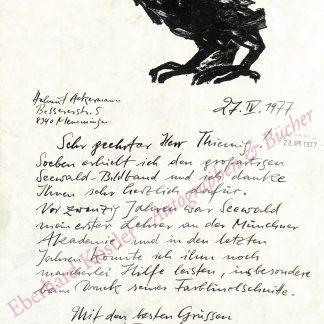 Helmut Ackermann
Bessererstr. 5
8940 Memmingen
27. IV. 1977
28. APR. 1977
Sehr geehrter Herr Thiemig
Soeben erhielt ich den großartigen
Seewald-Bildband und ich danke
Ihnen sehr herzlich dafür.
Vor zwanzig Jahren war Seewald
mein erster Lehrer an der Münchner
Akademie und in den letzten
Jahren konnte ich ihm noch
mancherlei Hilfe leisten, insbesondere
beim Druck seiner Farblinolschnitte.
Mit den besten Grüssen
Eberhard Köstler Autographen & Bücher